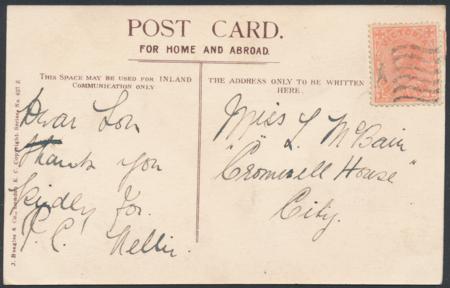 POST CARD.
FOR HOME AND ABROAD.
THIS SPACE MAY BE USED FOR INLAND
COMMUNICATION ONLY
THE ADDRESS ONLY TO BE WRITTEN
HERE.
VICTORIA
Dear Lou
thank you
kindly for
P.C. Nellie
Miss L McBain
"Cromwell House"
City.
J. Beagles & Co., London, E. C. Copyright. Series No. 627 Z